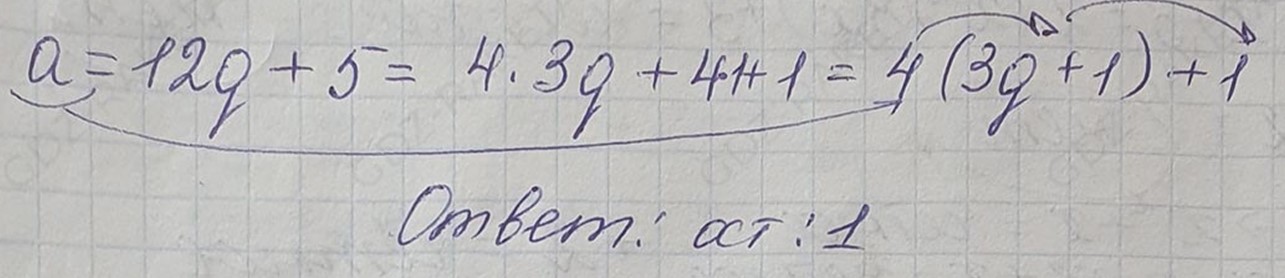 a = 12q + 5 = 4 · 3q + 4 + 1 = 4 (3q + 1) + 1
Ответ: ост: 1